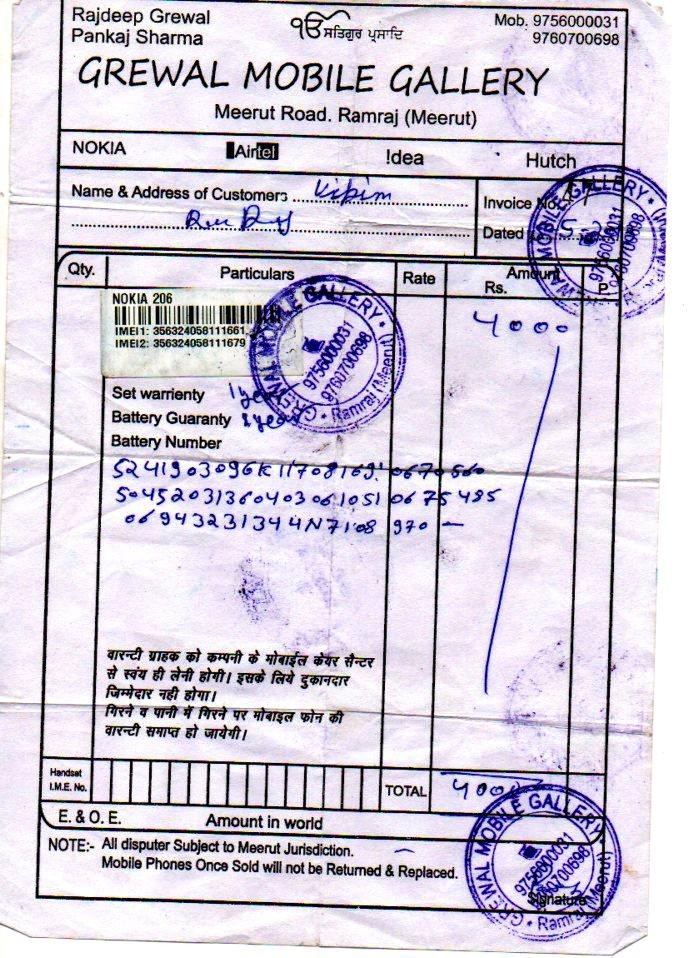 Rajdeep Grewal
Pankaj Sharma
ੴ ਸਤਿਗੁਰ ਪ੍ਰਸਾਦਿ
Mob. 9756000031
9760700698
GREWAL MOBILE GALLERY
Meerut Road. Ramraj (Meerut)
NOKIA Airtel !dea Hutch
Name & Address of Customers
Invoice No.
Dated
Qty. Particulars Rate Amount
Rs. P
NOKIA 206
IMEI1: 356324058111661
IMEI2: 356324058111679
4000
GREWAL MOBILE GALLERY • Ramraj (Meerut) •
9756000031
9760700698
Set warrienty 1 year
Battery Guaranty
Battery Number
वारन्टी ग्राहक को कम्पनी के मोबाईल केयर सैन्टर
से स्वंय ही लेनी होगी। इसके लिये दुकानदार
जिम्मेदार नही होगा।
गिरने व पानी में गिरने पर मोबाईल फोन की
वारन्टी समाप्त हो जायेगी।
Handset
I.M.E. No.
TOTAL 4000
E. & O. E. Amount in world
NOTE:- All disputer Subject to Meerut Jurisdiction.
Mobile Phones Once Sold will not be Returned & Replaced.
GREWAL MOBILE GALLERY • Ramraj (Meerut)
9756000031
9760700698
Signature